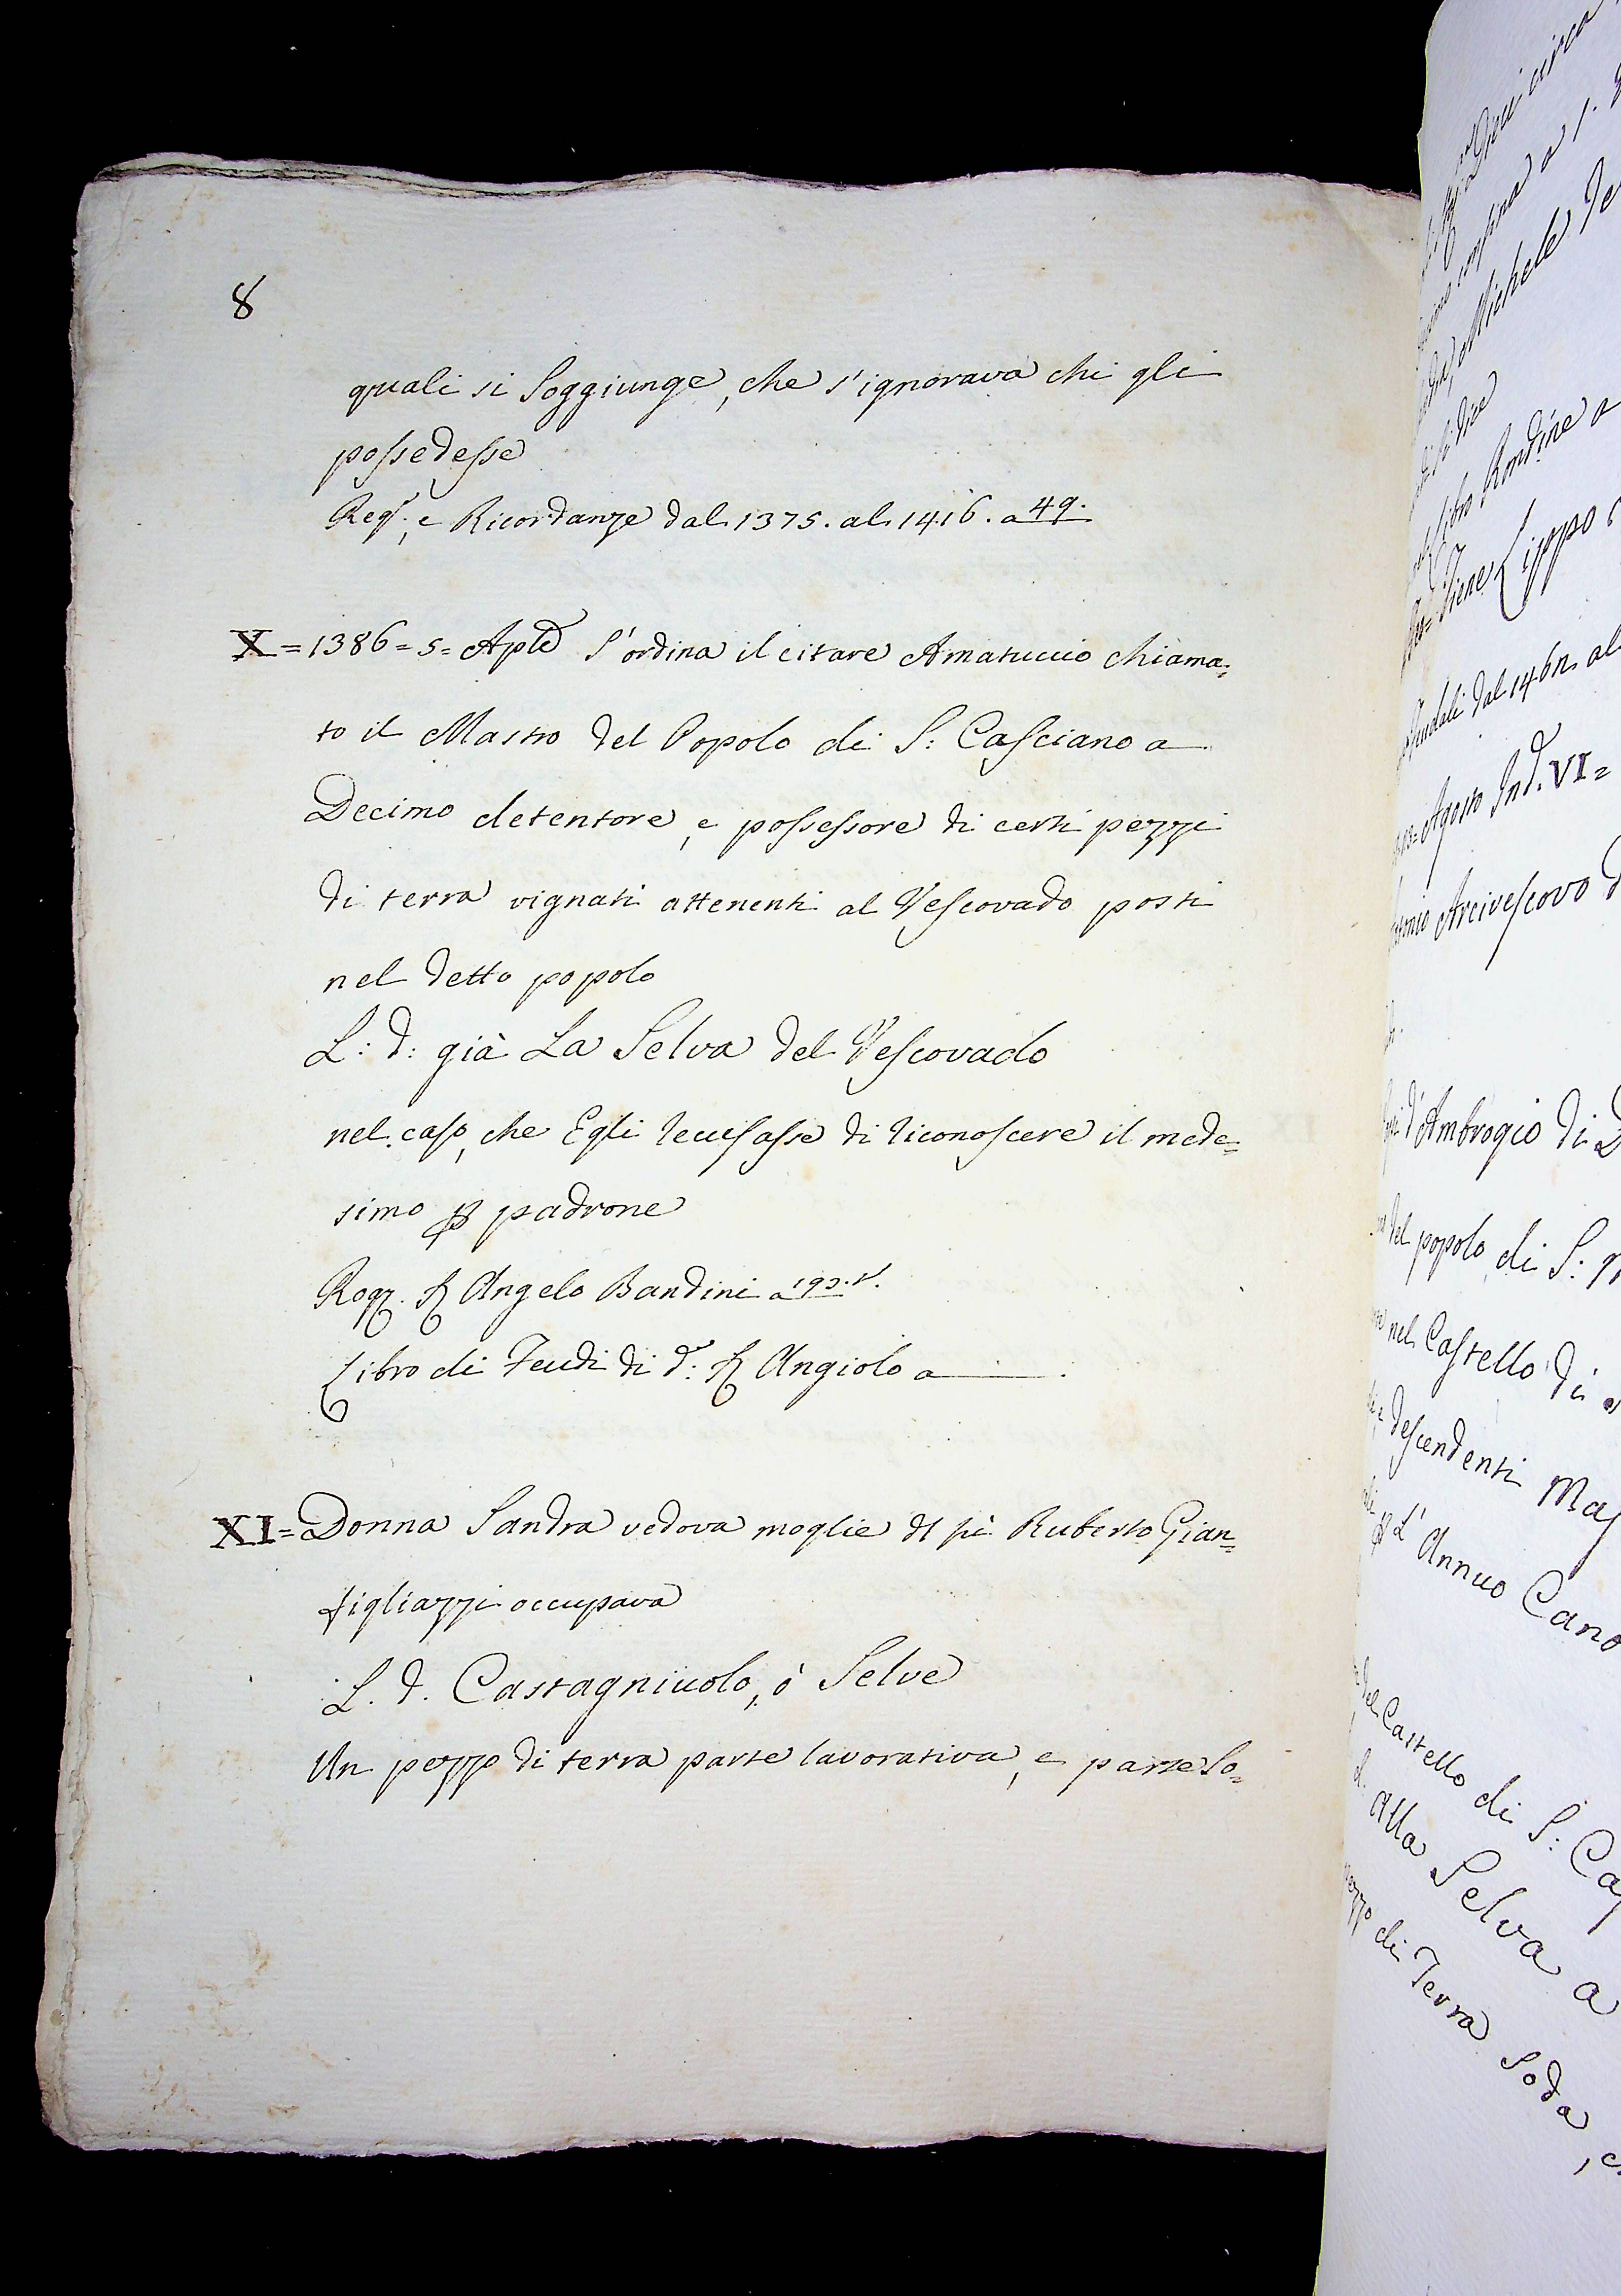 8
quali si soggiunge, che s'ignorava chi gli
possedesse
Regr., e Ricordanze dal 1375. al 1416. a 49.
X = 1386 = 5 = Aple S'ordina il citare Amatuccio chiama=
to il Mastro del Popolo di S: Casciano a
Decimo detentore, e possessore di certi pezzi
di terra vignati attenenti al Vescovado posti
nel detto popolo
L: d: già La Selva del Vescovado
nel caso, che Egli recusasse di riconoscere il mede=
simo p padrone
Rog. Angelo Bandini a
Libro di Feudi di d: Angiolo a
XI = Donna Sandra vedova moglie dl fù Ruberto Gian=
figliazzi occupava
L. d. Castagniuolo, ò Selve
Un pezzo di terra parte lavorativa, e parte so=
Michele
si dice
libro
Lippo
dal 1462 al
Agosto Ind. VI =
Arcivescovo
d'Ambrogio di
del popolo di S:
nel Castello di
descendenti
p L'Annuo
del Castello di S:
Alla Selva a
pezzo di Terra soda,